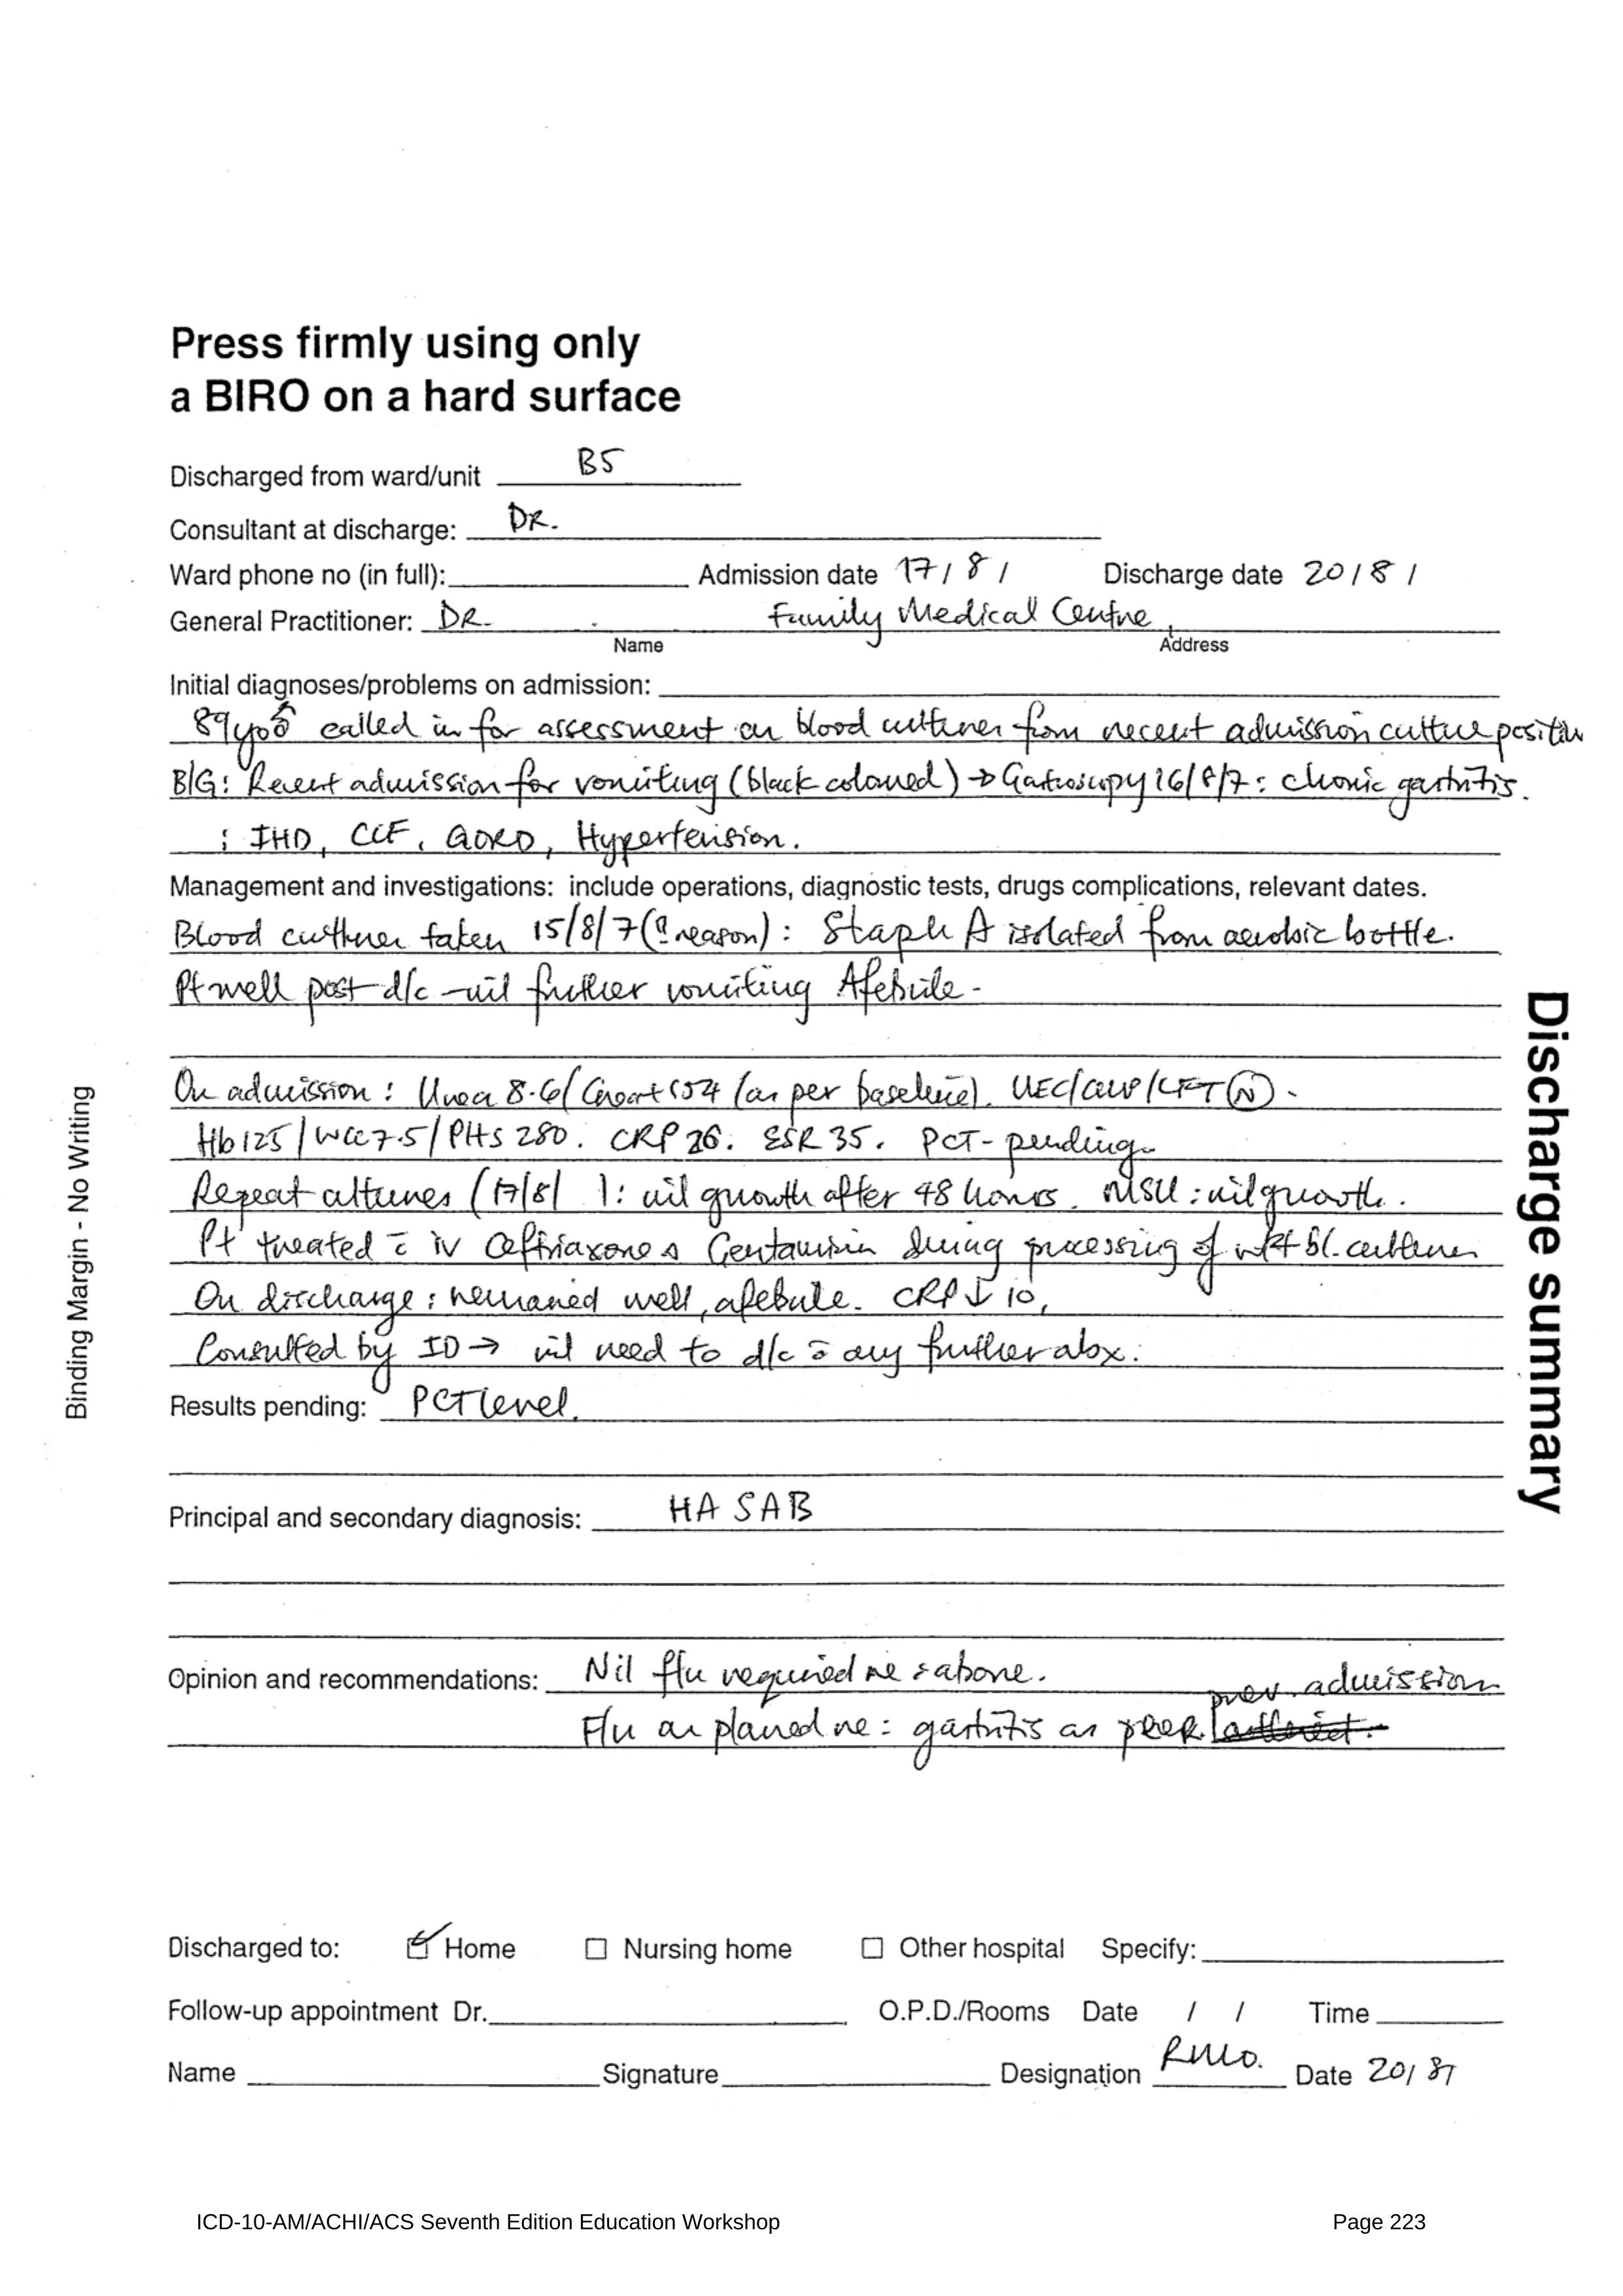 Press firmly using only
a BIRO on a hard surface
Discharged from ward/unit B5
Consultant at discharge: DR.
Ward phone no (in full): Admission date 17/8/ Discharge date 20/8/
General Practitioner: DR. Family Medical Centre
Name Address
Initial diagnoses/problems on admission:
89yo♂ called in for assessment as blood cultures from recent admission culture positive
B/G: Recent admission for vomiting (black coloured) → Gastroscopy 16/8/7: chronic gastritis.
: IHD, CCF, GORD, Hypertension.
Management and investigations: include operations, diagnostic tests, drugs complications, relevant dates.
Blood cultures taken 15/8/7 (? reason): Staph A isolated from aerobic bottle.
Pt well post d/c - nil further vomiting Afebrile -
On admission: Urea 8.6/Creat 154 (as per baseline). UEC/CMP/LFT (N).
Hb125/WCC7.5/Plts 280. CRP 26. ESR 35. PCT - pending.
Repeat cultures (17/8/ ): nil growth after 48 hours. MSU: nil growth.
Pt treated c̄ IV Ceftriaxone & Gentamicin during processing of bl. cultures
On discharge: remained well, afebrile. CRP ↓ 10,
Consulted by ID → nil need to d/c c̄ any further abx.
Results pending: PCT level.
Principal and secondary diagnosis: HA SAB
Opinion and recommendations: Nil f/u required re: above.
F/u as planed re: gastritis as per prev. admission
Discharged to: ☑ Home ☐ Nursing home ☐ Other hospital Specify:
Follow-up appointment Dr. O.P.D./Rooms Date / / Time
Name Signature Designation RMO. Date 20/8/
Binding Margin - No Writing
Discharge summary
ICD-10-AM/ACHI/ACS Seventh Edition Education Workshop Page 223